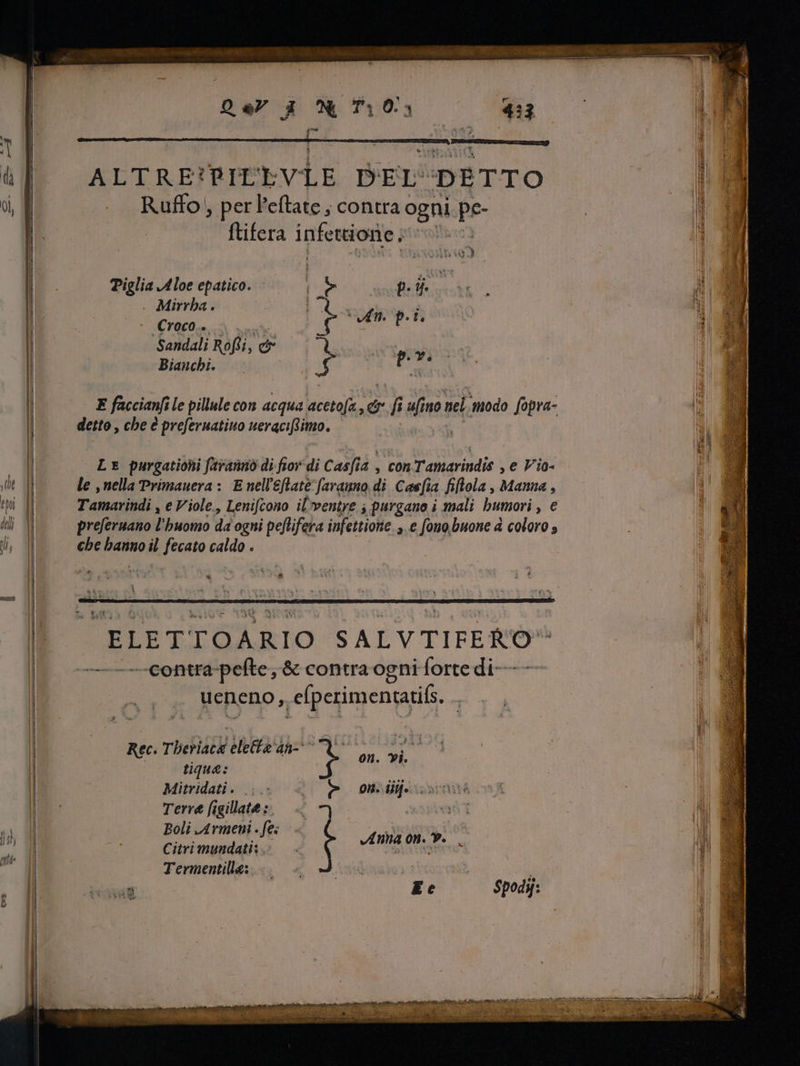 QVARTO. 433
ALTRE PILLVLE DEL DETTO
Ruffo, per l'eſtate, contra ogni pe-
ſtifera infettione.
Piglia Aloe epatico. p. ij.
Mirrha.
Croco. An. p. i.
Sandali Roſſi, &
Bianchi. p. v.
E faccianſi le pillule con acqua acetoſa, & ſi uſino nel modo ſopra-
detto, che è preſeruatiuo ueraciſsimo.
LE purgationi ſaranno di fior di Casſia, con Tamarindis, e Vio-
le, nella Primauera: E nell'eſtate ſaranno di Casſia fiſtola, Manna,
Tamarindi, e Viole, Leniſcono il ventre, purgano i mali humori, e
preſeruano l'huomo da ogni peſtifera infettione, e ſono buone à coloro,
che hanno il fecato caldo.
ELETTOARIO SALVTIFERO
contra peſte, & contra ogni ſorte di
ueneno, eſperimentatiſs.
Rec. Theriacæ electæ an-
tiquæ: on. vi.
Mitridati. on. iiij.
Terræ ſigillatæ:
Boli Armeni. fe:
Citri mundatis: Anna on. v.
Termentillæ:
Ee Spodij: